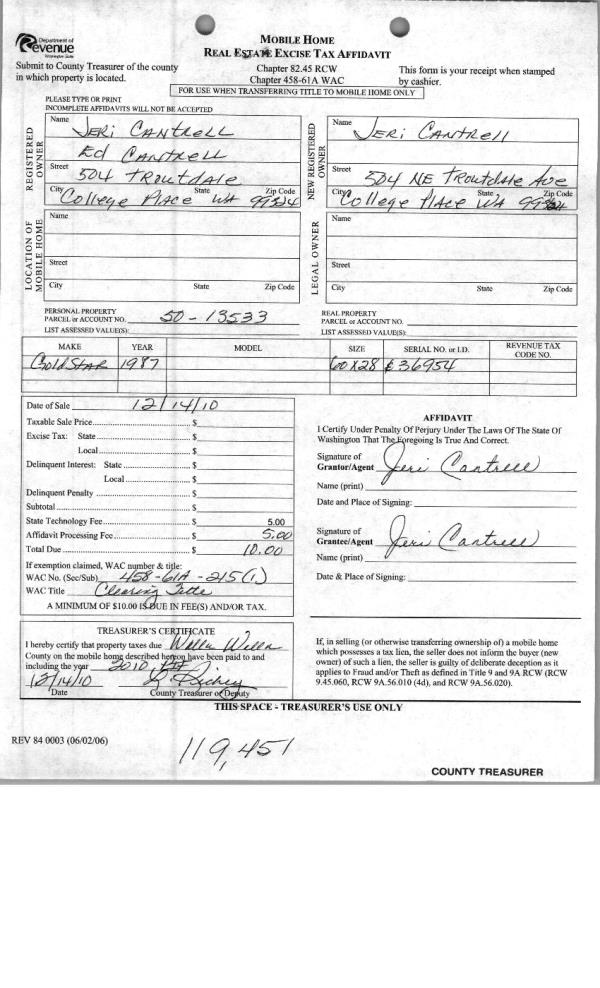 Department of
Revenue
Washington State
MOBILE HOME
REAL ESTATE EXCISE TAX AFFIDAVIT
Submit to County Treasurer of the county
in which property is located.
Chapter 82.45 RCW
Chapter 458-61A WAC
This form is your receipt when stamped
by cashier.
FOR USE WHEN TRANSFERRING TITLE TO MOBILE HOME ONLY
PLEASE TYPE OR PRINT
INCOMPLETE AFFIDAVITS WILL NOT BE ACCEPTED
REGISTERED
OWNER
Name JERI CANTRELL
Ed CANTRELL
Street 504 TROUTDALE
City State Zip Code
College Place WA 99324
NEW REGISTERED
OWNER
Name JERI CANTRELL
Street 504 NE Troutdale Ave
City State Zip Code
College Place WA 99324
LOCATION OF
MOBILE HOME
Name
Street
City State Zip Code
LEGAL OWNER
Name
Street
City State Zip Code
PERSONAL PROPERTY
PARCEL or ACCOUNT NO. 50-13533
LIST ASSESSED VALUE(S):
REAL PROPERTY
PARCEL or ACCOUNT NO.
LIST ASSESSED VALUE(S):
MAKE YEAR MODEL SIZE SERIAL NO. or I.D. REVENUE TAX CODE NO.
GoldStar 1987 60x28 36954
Date of Sale 12/14/10
Taxable Sale Price $
Excise Tax: State $
Local $
Delinquent Interest: State $
Local $
Delinquent Penalty $
Subtotal $
State Technology Fee $ 5.00
Affidavit Processing Fee $ 5.00
Total Due $ 10.00
If exemption claimed, WAC number & title:
WAC No. (Sec/Sub) 458-61A-215(1)
WAC Title Clearing Title
A MINIMUM OF $10.00 IS DUE IN FEE(S) AND/OR TAX.
AFFIDAVIT
I Certify Under Penalty Of Perjury Under The Laws Of The State Of
Washington That The Foregoing Is True And Correct.
Signature of
Grantor/Agent Jeri Cantrell
Name (print)
Date and Place of Signing:
Signature of
Grantee/Agent Jeri Cantrell
Name (print)
Date & Place of Signing:
TREASURER'S CERTIFICATE
I hereby certify that property taxes due Walla Walla
County on the mobile home described hereon have been paid to and
including the year 2010
12/14/10
Date County Treasurer or Deputy
If, in selling (or otherwise transferring ownership of) a mobile home
which possesses a tax lien, the seller does not inform the buyer (new
owner) of such a lien, the seller is guilty of deliberate deception as it
applies to Fraud and/or Theft as defined in Title 9 and 9A RCW (RCW
9.45.060, RCW 9A.56.010 (4d), and RCW 9A.56.020).
THIS SPACE - TREASURER'S USE ONLY
REV 84 0003 (06/02/06)
119,451
COUNTY TREASURER